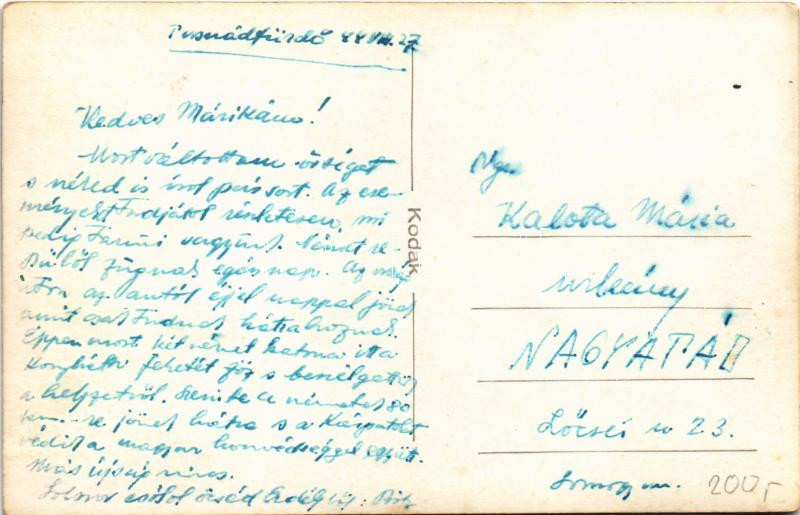 Tusnádfürdő 44 VIII. 27
Kedves Márikám!
Most váltottam őrséget
s néked is írok pár sort. Az ese-
ményeket Tudjátok részletesen, mi
pedig Tanúi vagyunk. Német re-
pülők zúgnak egész nap. Az
úton az autók éjjel nappal jönnek
amit csak Tudnak hátra hoznak.
Éppen most két német katona itta
Konyhánk feketéjét s beszélgettünk
a helyzetről. Szerinte a németek 80
km.-re jönnek hátra s a Kárpátokat
védik a magyar honvédséggel együtt.
Más újság nincs.
Sokszor csókol öcséd
Kodak
Ngs.
Kalotta Mária
urleány
NAGYATÁD
Lőcsei u 23.
Somogy m.
200,-